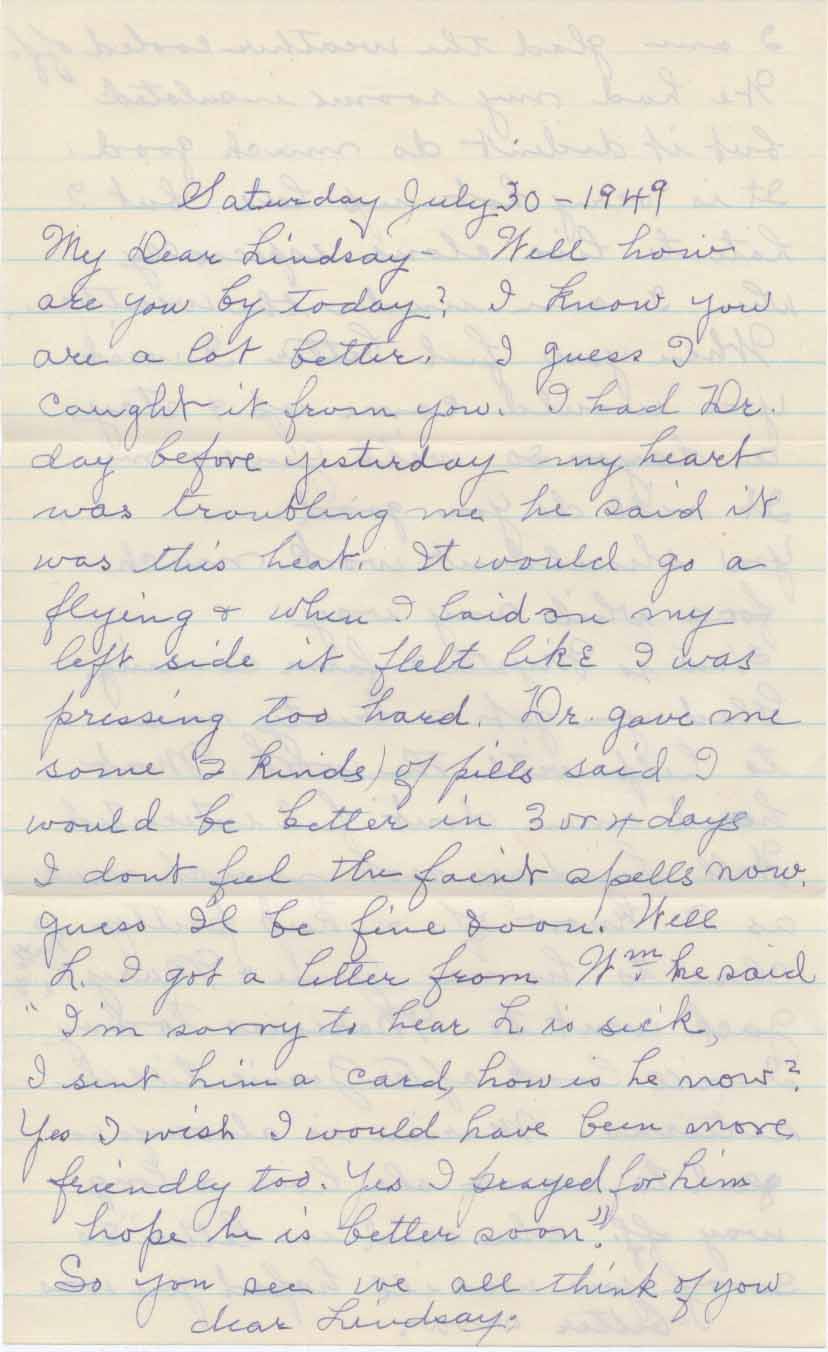 Saturday July 30 - 1949
My Dear Lindsay - Well how
are you by today? I know you
are a lot better. I guess I
caught it from you. I had Dr.
day before yesterday my heart
was troubling me he said it
was this heat. It would go a
flying & when I laid on my
left side it flelt like I was
pressing too hard. Dr. gave me
some 2 kinds) of pills said I
would be better in 3 or 4 days
I dont feel the faint spells now.
guess I'l be fine soon. Well
L. I got a letter from Wm. he said
"I'm sorry to hear L is sick,
I sent him a card, how is he now?
Yes I wish I would have been more
friendly too. Yes I prayed for him
hope he is better soon".
So you see we all think of you
dear Lindsay.